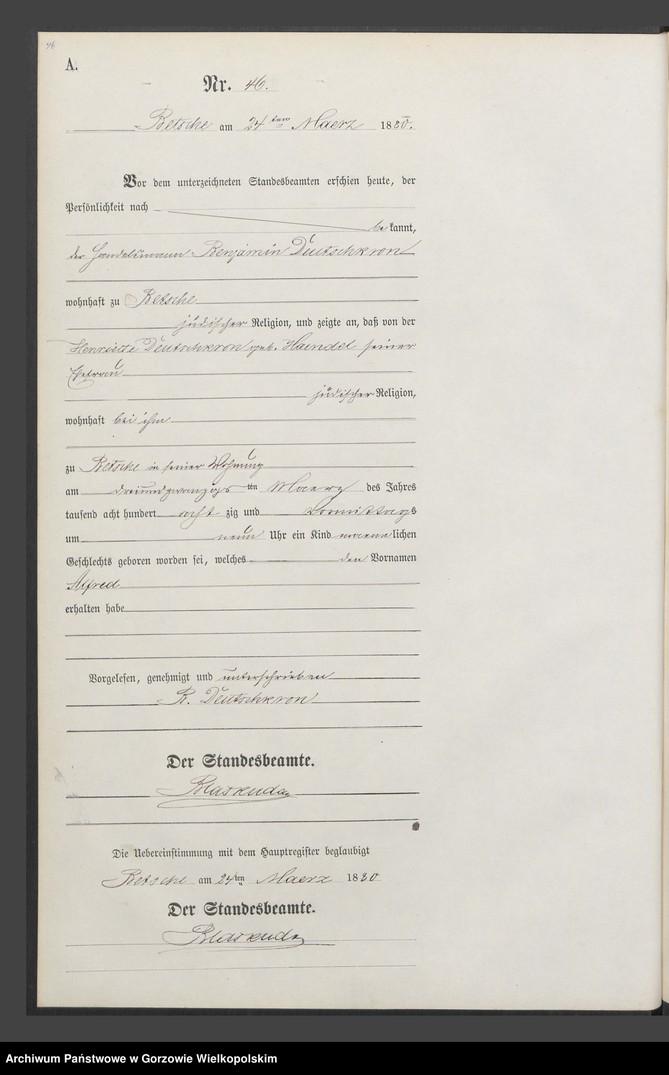 46
A.
Nr. 46.
Betsche am 24ten Maerz 1880.
Vor dem unterzeichneten Standesbeamten erschien heute, der
Persönlichkeit nach
bekannt,
der Handelsmann Benjamin Deutschkron
wohnhaft zu Betsche
jüdischer Religion, und zeigte an, daß von der
Henriette Deutschkron geb. Haendel seiner
Ehefrau
jüdischer Religion,
wohnhaft bei ihm
zu Betsche in seiner Wohnung
am dreiundzwanzigsten Maerz des Jahres
tausend acht hundert acht zig und Vormittags
um neun Uhr ein Kind maennlichen
Geschlechts geboren worden sei, welches den Vornamen
Alfred
erhalten habe
Vorgelesen, genehmigt und unterschrieben
B. Deutschkron
Der Standesbeamte.
Die Uebereinstimmung mit dem Hauptregister beglaubigt
Betsche am 24ten Maerz 1880
Der Standesbeamte.
Archiwum Państwowe w Gorzowie Wielkopolskim